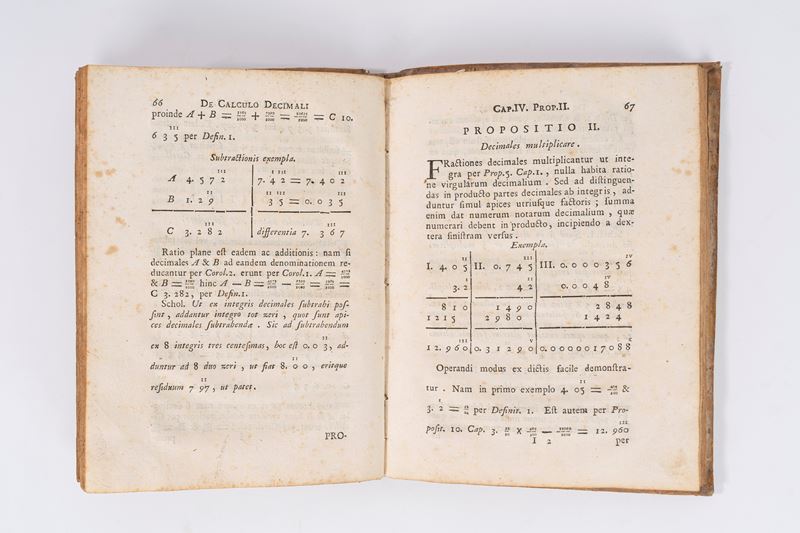 66 DE CALCULO DECIMALI
proinde A + B = + = = C 10.
III
6 3 5 per Defin. 1.
Subtractionis exempla.
III I III III
A 4. 5 7 2 7. 4 2 = 7. 4 0 2
II II III III
B 1. 2 9 3 5 = 0. 0 3 5
III III
C 3. 2 8 2 differentia 7. 3 6 7
Ratio plane eſt eadem ac additionis: nam ſi
decimales A & B ad eandem denominationem re-
ducantur per Corol. 2. erunt per Corol. 1. A =
& B = hinc A — B = — = =
C 3. 282, per Defin. 1.
Schol. Ut ex integris decimales ſubtrahi poſ-
ſint, addantur integro tot zeri, quot ſunt api-
ces decimales ſubtrahendæ. Sic ad ſubtrahendum
II
ex 8 integris tres centeſimas, hoc eſt 0. 0 3, ad-
II
duntur ad 8 duo zeri, ut fiat 8. 0 0, eritque
II
reſiduum 7 97, ut patet.
PRO-
CAP. IV. PROP. II. 67
PROPOSITIO II.
Decimales multiplicare.
FRactiones decimales multiplicantur ut inte-
gra per Prop. 5. Cap. 1., nulla habita ratio-
ne virgularum decimalium. Sed ad diſtinguen-
das in producto partes decimales ab integris, ad-
duntur ſimul apices utriuſque factoris; ſumma
enim dat numerum notarum decimalium, quæ
numerari debent in producto, incipiendo a dex-
tera ſiniſtram verſus.
Exempla.
II III IV
I. 4. 0 5 II. 0. 7 4 5 III. 0. 0 0 0 3 5 6
I II IV
3. 2 4 2 0. 0 0 4 8
8 1 0 1 4 9 0 2 8 4 8
1 2 1 5 2 9 8 0 1 4 2 4
III V
12. 9 6 0 0. 3 1 2 9 0 0. 0 0 0 0 0 1 7 0 8 8
Operandi modus ex dictis facile demonſtra-
II
tur. Nam in primo exemplo 4. 05 = &
I
3. 2 = per Definit. 1. Eſt autem per Pro-
III
poſit. 10. Cap. 3. X = 12. 960
I 2 per